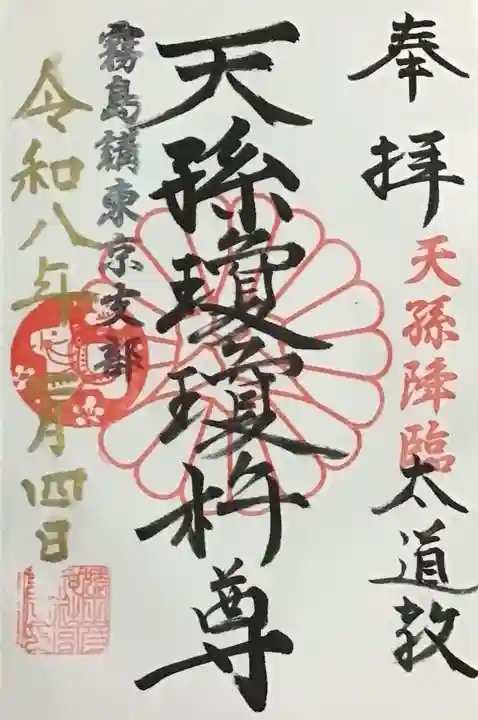 奉拝
天孫降臨
太道教
天孫瓊瓊杵尊
霧島講東京支部
令和八年一月四日